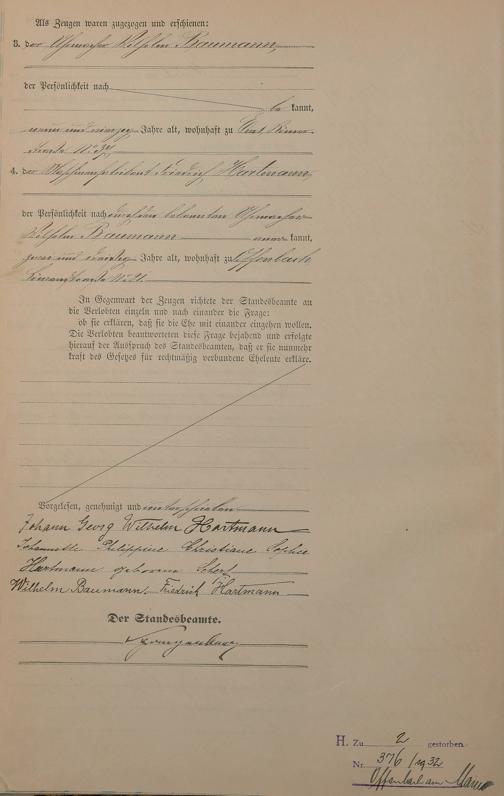 Als Zeugen waren zugezogen und erschienen:
3. der Wilhelm Baumann,
der Persönlichkeit nach
be kannt,
neun und zwanzig Jahre alt, wohnhaft zu
4. der Friedrich Hartmann,
der Persönlichkeit nach durch den bekannten
Wilhelm Baumann kannt,
zwanzig Jahre alt, wohnhaft zu Offenbach
In Gegenwart der Zeugen richtete der Standesbeamte an
die Verlobten einzeln und nach einander die Frage:
ob sie erklären, daß sie die Ehe mit einander eingehen wollen.
Die Verlobten beantworteten diese Frage bejahend und erfolgte
hierauf der Ausspruch des Standesbeamten, daß er sie nunmehr
kraft des Gesetzes für rechtmäßig verbundene Eheleute erkläre.
Vorgelesen, genehmigt und unterschrieben
Johann Georg Wilhelm Hartmann
Johannette Philippine Christiane Sophie
Hartmann geborene
Wilhelm Baumann, Friedrich Hartmann
Der Standesbeamte.
H. Zu 2 gestorben.
Nr. 376/1932
Offenbach am Main